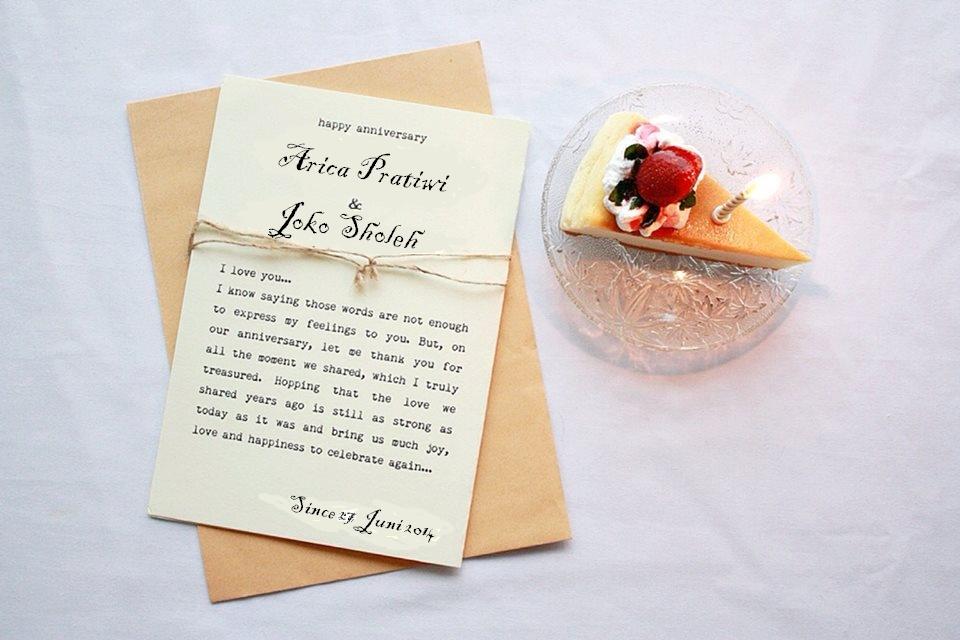 happy anniversary
Arica Pratiwi
&
Joko Sholeh
I love you...
I know saying those words are not enough
to express my feelings to you. But, on
our anniversary, let me thank you for
all the moment we shared, which I truly
treasured. Hopping that the love we
shared years ago is still as strong as
today as it was and bring us much joy,
love and happiness to celebrate again...
Since 27 Juni 2014